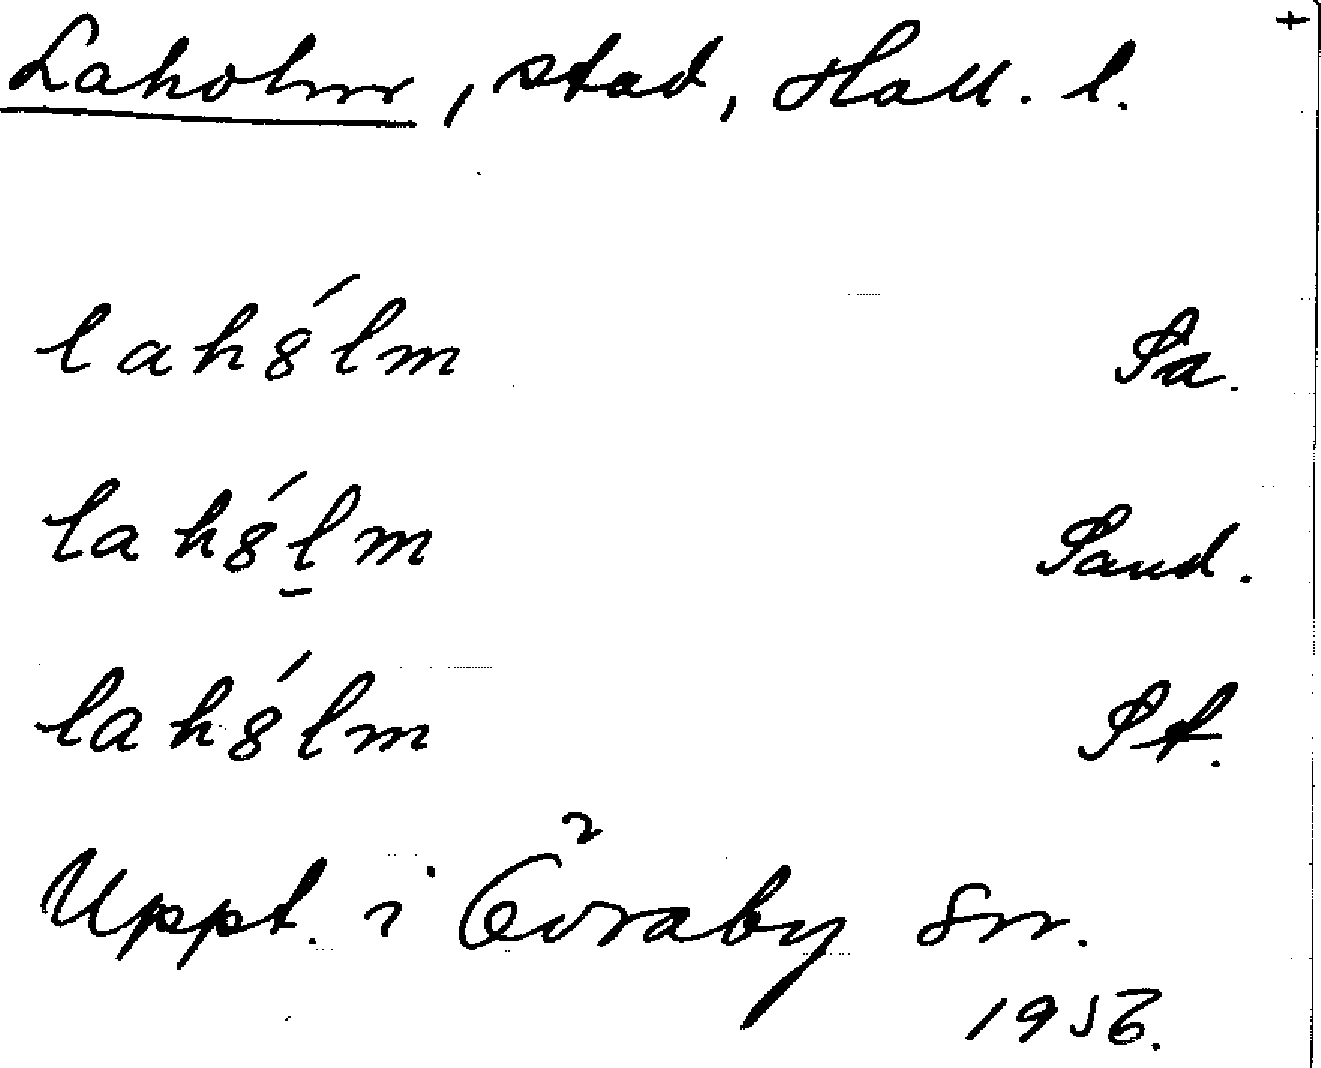 +
Laholm, stad, Hall. l.
lah8́lm Sa.
lah8́l̲m Sand.
lah8́lm St.
Uppt. i Övraby sn.
1956.